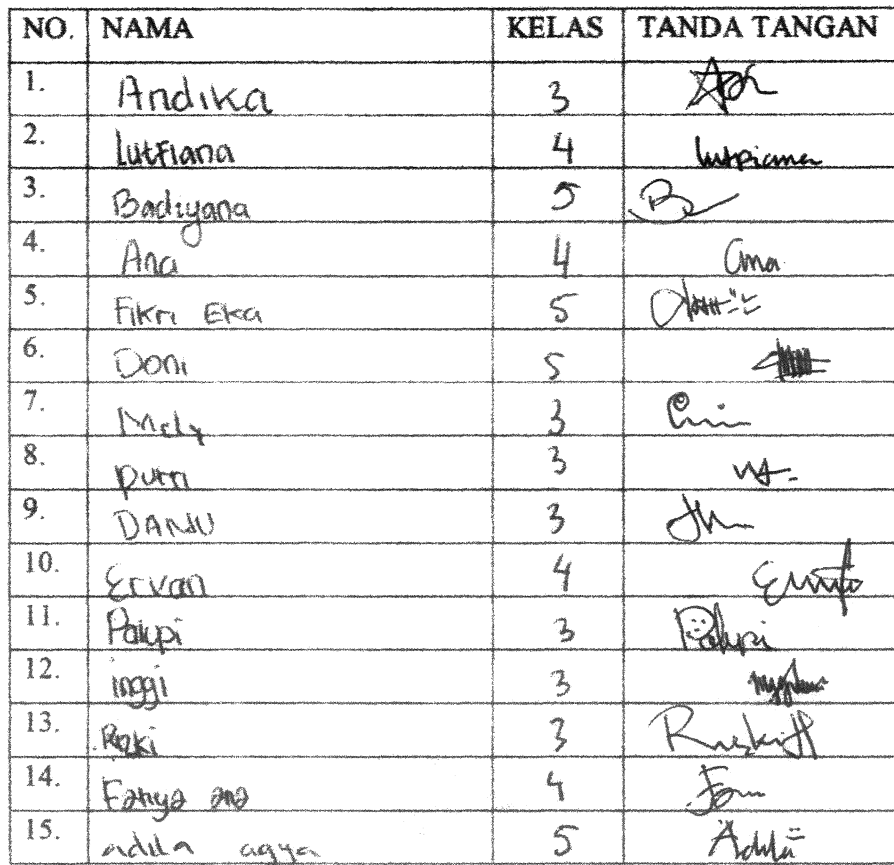 NO. NAMA KELAS TANDA TANGAN
1. Andika 3
2. lutfiana 4 lutpiana
3. Badiyana 5
4. Ana 4 Ana
5. Fikri Eka 5
6. Doni 5
7. Mely 3
8. putri 3
9. DANU 3
10. Ervan 4
11. Palupi 3 Palupi
12. inggi 3
13. Rizki 3
14. ana 4
15. adila agya 5 Adila